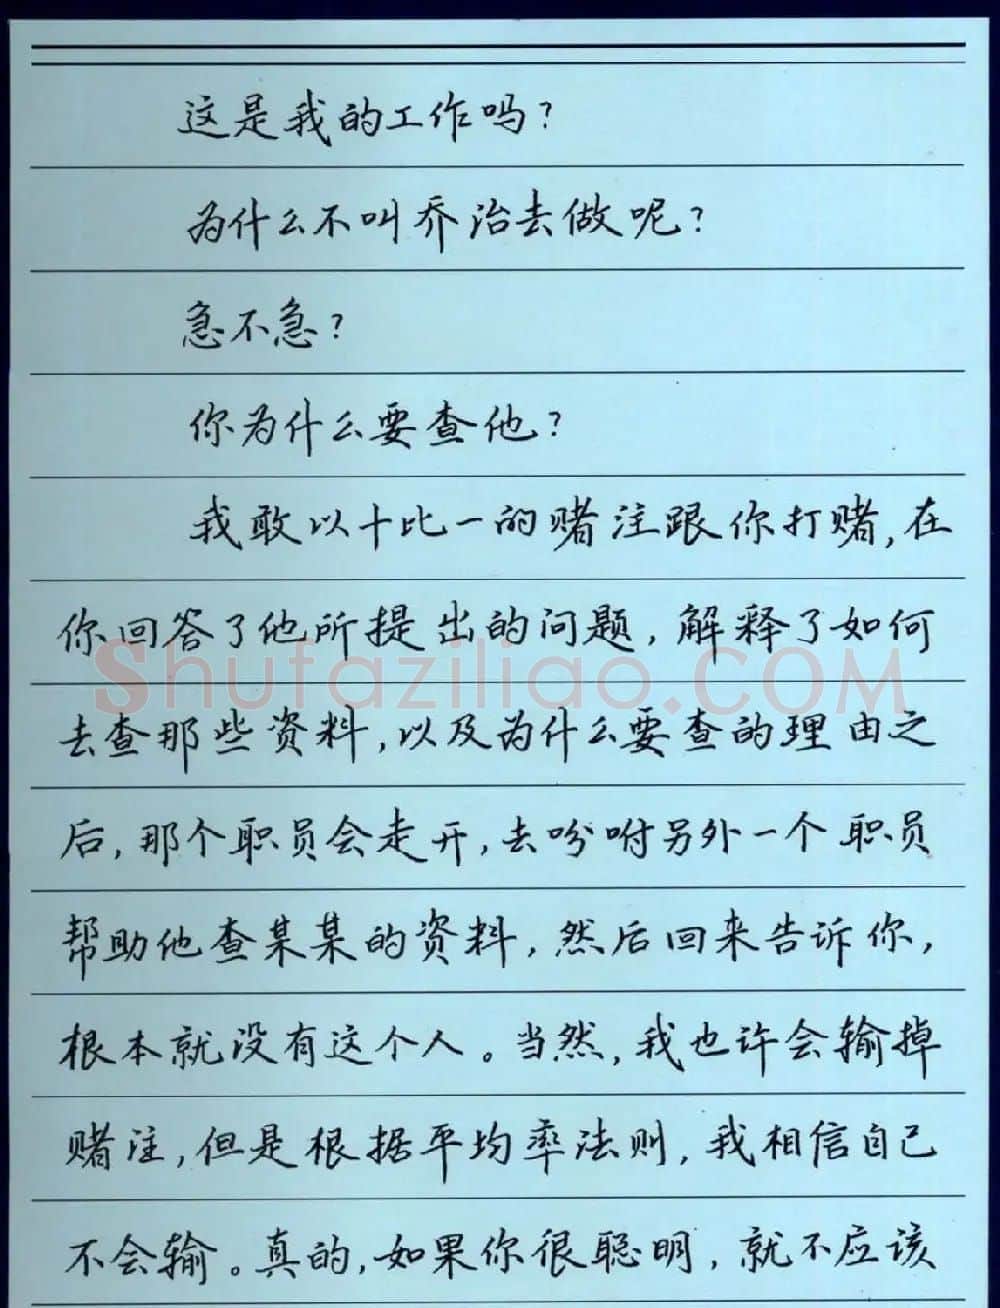 这是我的工作吗?
为什么不叫乔治去做呢?
急不急?
你为什么要查他?
我敢以十比一的赌注跟你打赌,在
你回答了他所提出的问题,解释了如何
Shufaziliao.COM
去查那些资料,以及为什么要查的理由之
后,那个职员会走开,去吩咐另外一个职员
帮助他查某某的资料,然后回来告诉你,
根本就没有这个人。当然,我也许会输掉
赌注,但是根据平均率法则,我相信自己
不会输。真的,如果你很聪明,就不应该